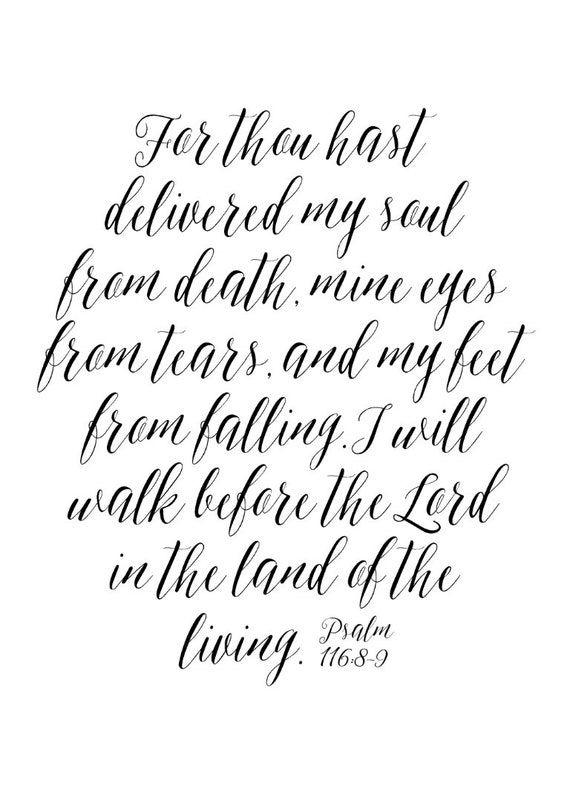 For thou hast
delivered my soul
from death, mine eyes
from tears, and my feet
from falling. I will
walk before the Lord
in the land of the
living.
Psalm
116:8-9